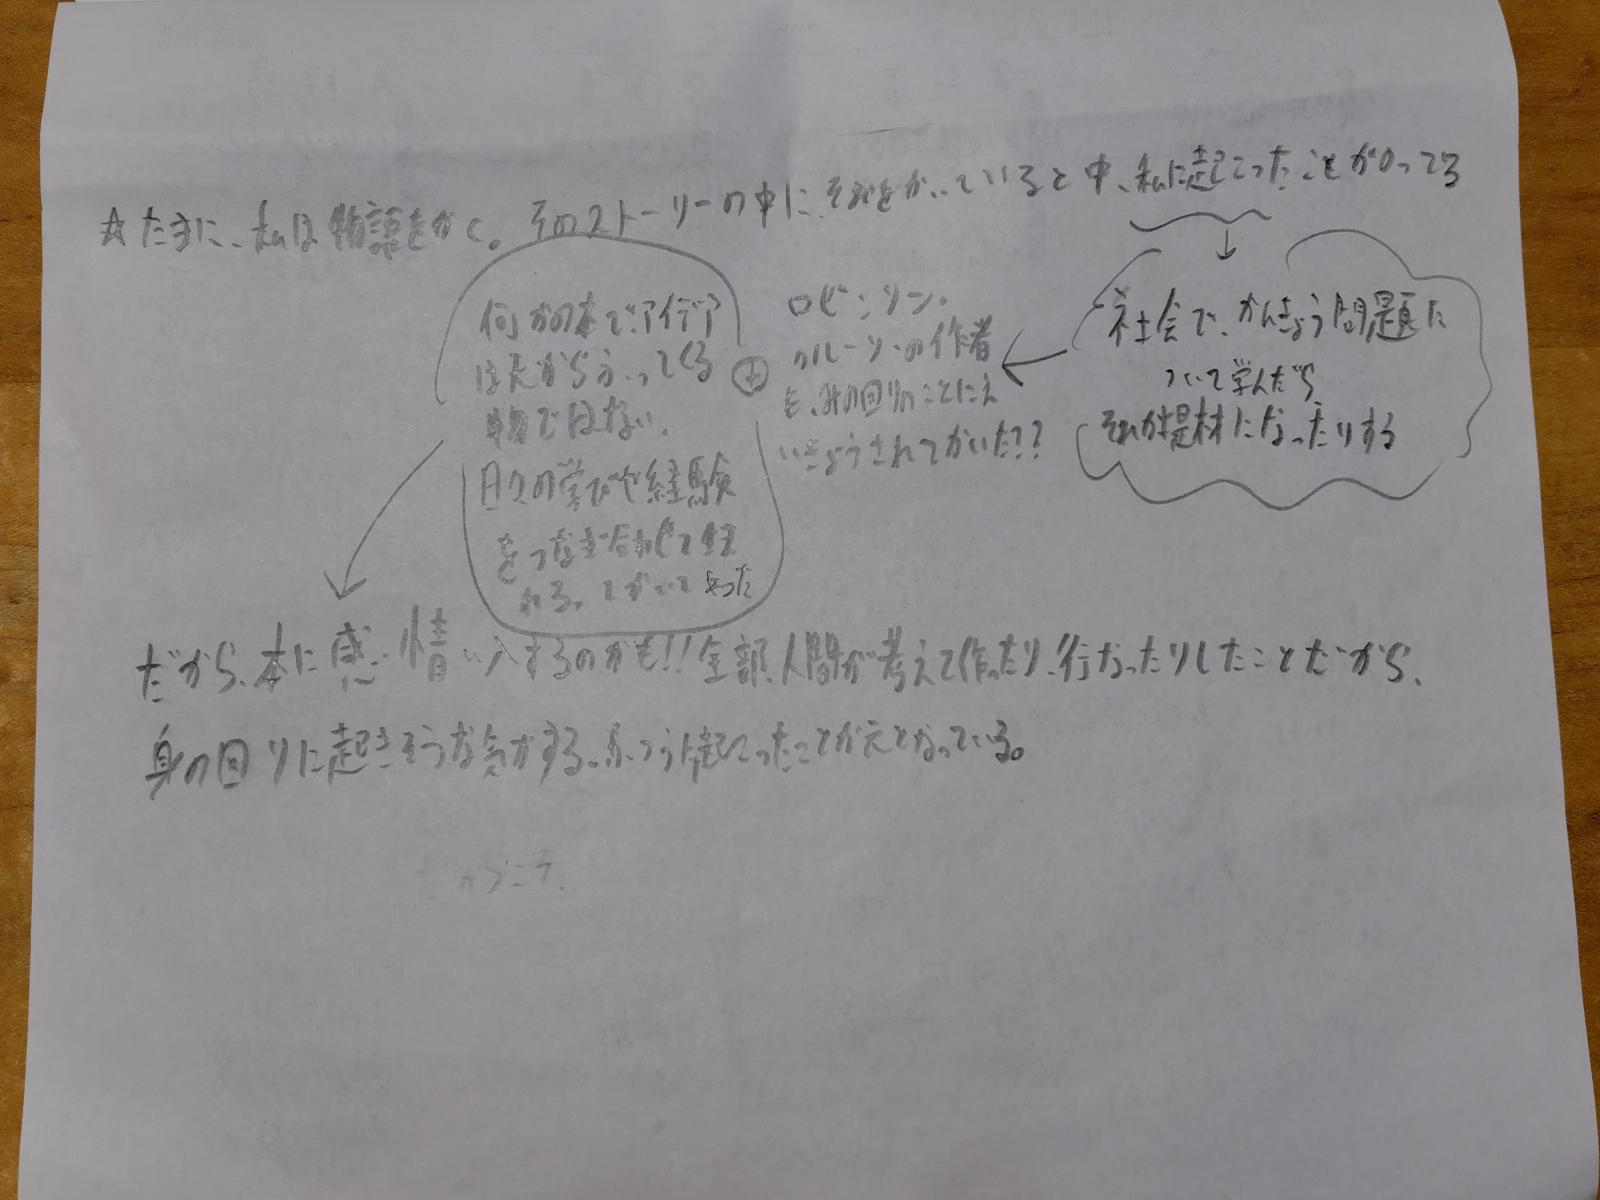 ☆たまに、私は物語をかく。そのストーリーの中に、それをかいていると中、私に起こったことがのってる
何かの本で、アイデア
は天からふってくる
物ではない、
日々の学びや経験
をつなぎ合わせて生ま
れる。ってかいてあった
ロビンソン・
クルーソーの作者
も、みの回りのことにえ
いきょうされてかいた??
社会で、かんきょう問題に
ついて学んだら
それが提材になったりする
だから、本に感情い入するのかも!!全部、人間が考えて作ったり、行なったりしたことだから、
身の回りに起きそうな気がする。ふつうに起こったことが元となっている。